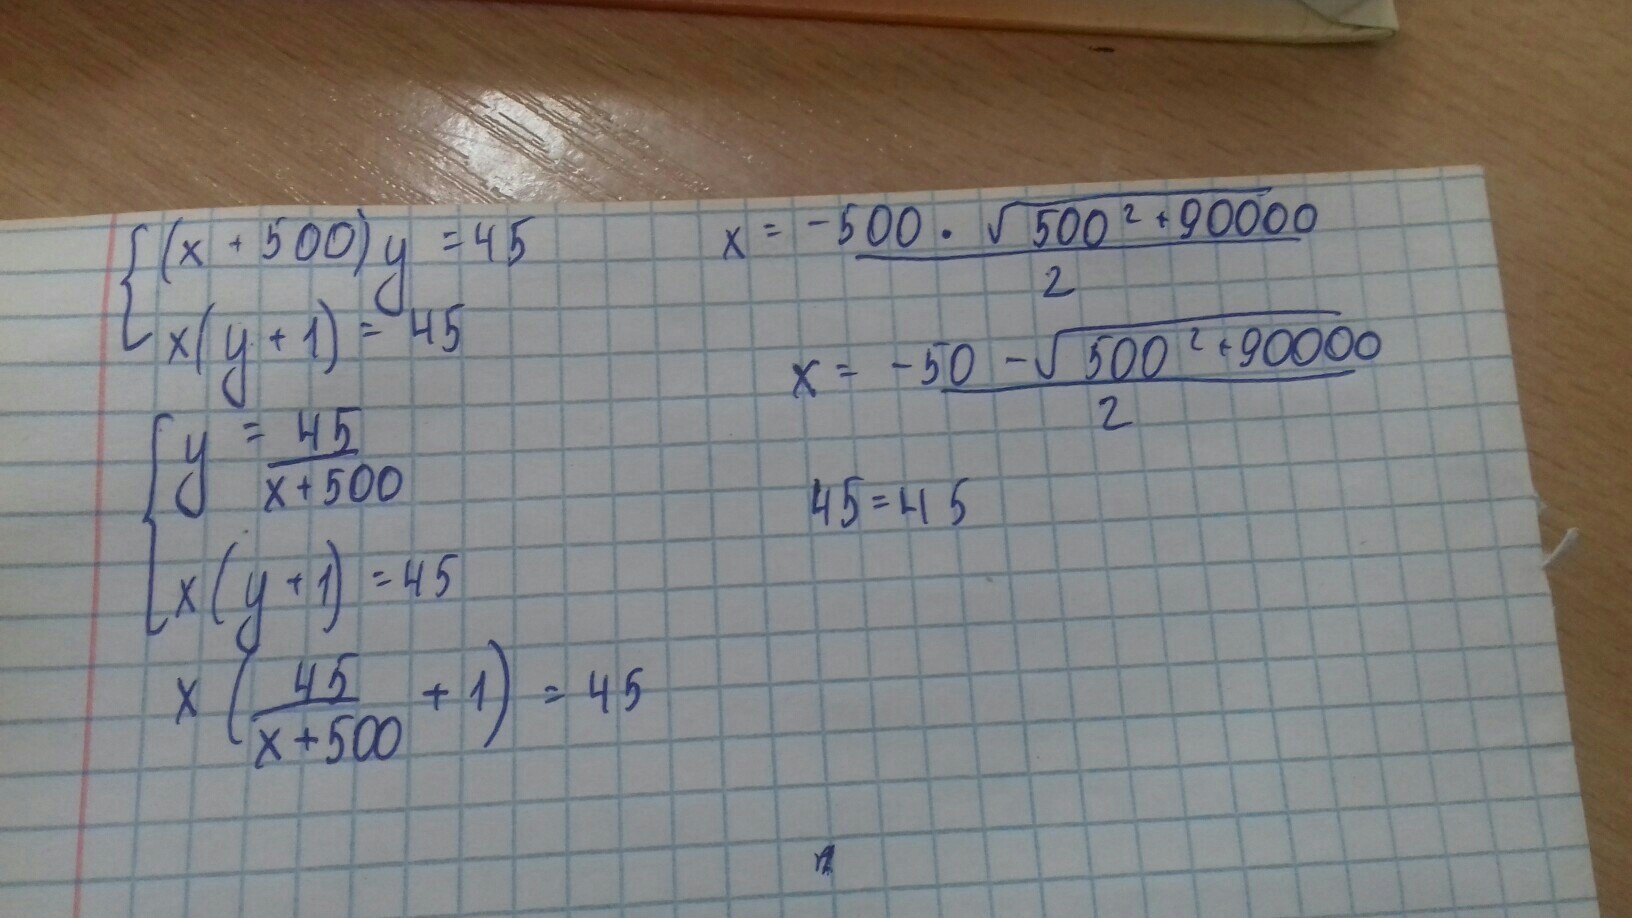 {(x + 500)y = 45
x(y + 1) = 45
{y = 45/(x+500)
x(y + 1) = 45
x(45/(x+500) + 1) = 45
x = (-500 · √(500² + 90000))/2
x = (-50 - √(500² + 90000))/2
45 = 45